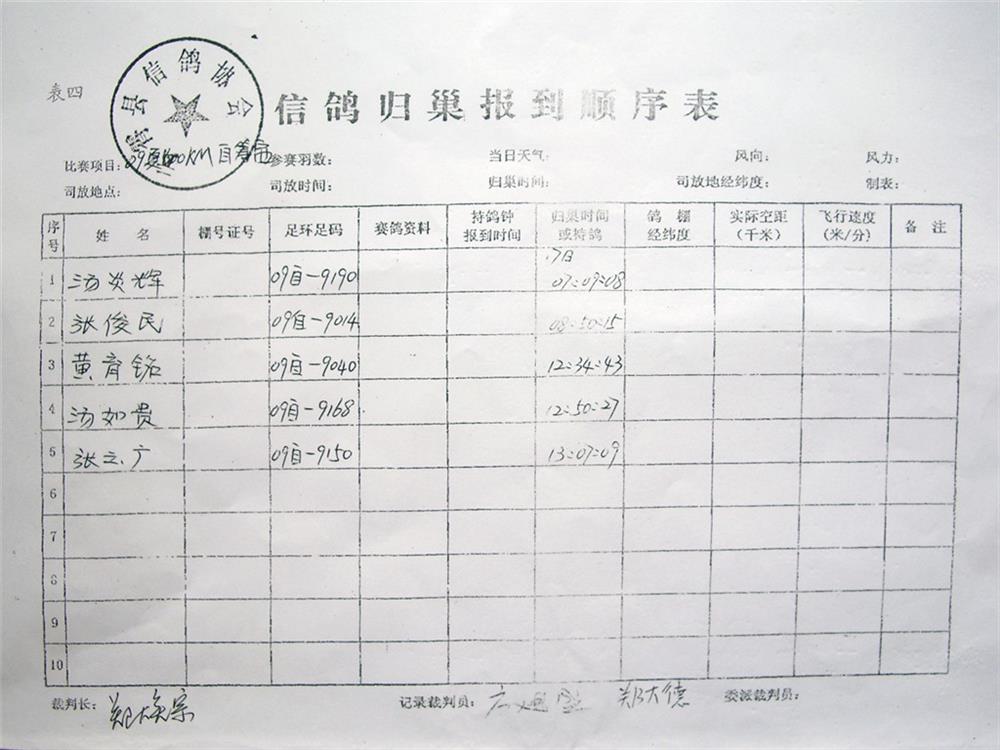 表四
县信鸽协会
信鸽归巢报到顺序表
比赛项目: 参赛羽数: 当日天气: 风向: 风力:
司放地点: 司放时间: 归巢时间: 司放地经纬度: 制表:
序号 姓名 棚号证号 足环足码 赛鸽资料 持鸽钟报到时间 归巢时间或持鸽 鸽棚经纬度 实际空距(千米) 飞行速度(米/分) 备注
17日
1 汤炎辉 09自-9190 07:09:08
2 张俊民 09自-9014 08:50:15
3 黄育铭 09自-9040 12:34:43
4 汤如贵 09自-9168 12:50:27
5 张云广 09自-9150 13:07:09
6
7
8
9
10
裁判长: 郑焕宗 记录裁判员: 郑大德 委派裁判员: